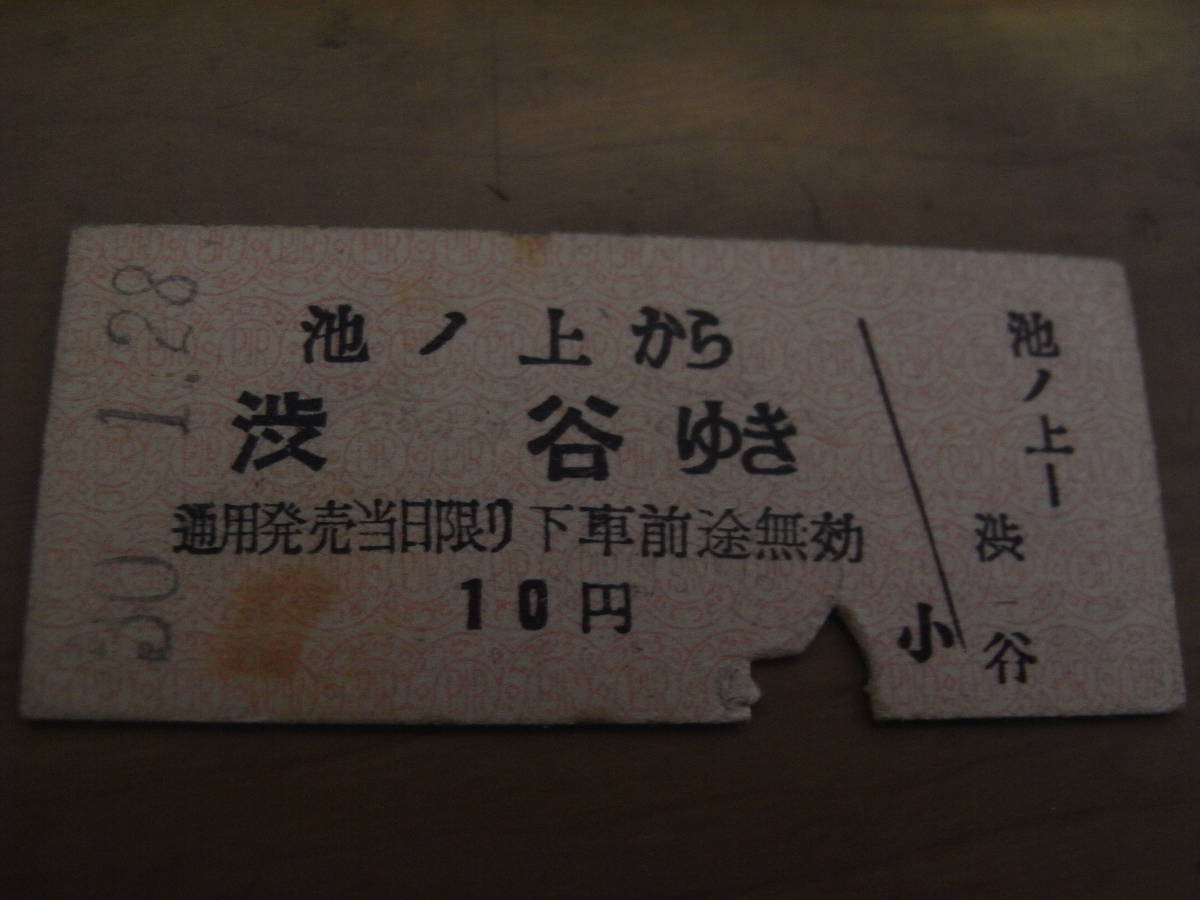 30 1.28
池ノ上から
渋谷ゆき
通用発売当日限り下車前途無効
10円
小
池ノ上ー
渋谷